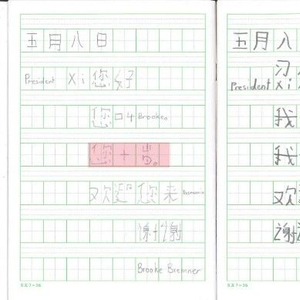 五月八日
President Xi 您好
您叫 Brooke.
您十岁。
欢迎您来
谢谢
Brooke Bremner
五月八
习
President Xi
我
我
欢
谢